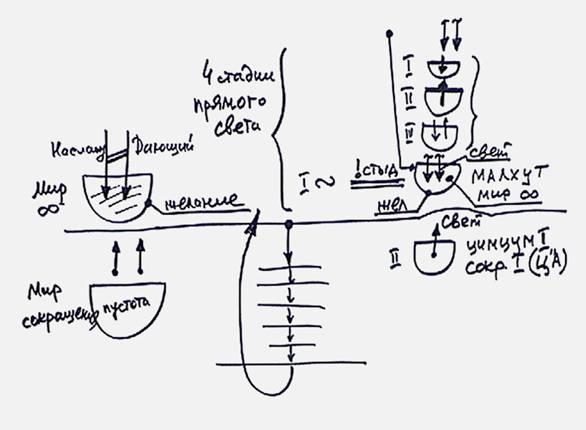 4 стадии
прямого
света
Наслаж
Дающий
Мир
∞
желание
I
II
IV
I ∾
!стыд
свет
МАЛХУТ
мир ∞
жел
свет
II
цимцум I
сокр. I (Ц"А)
Мир
сокращения
пустота